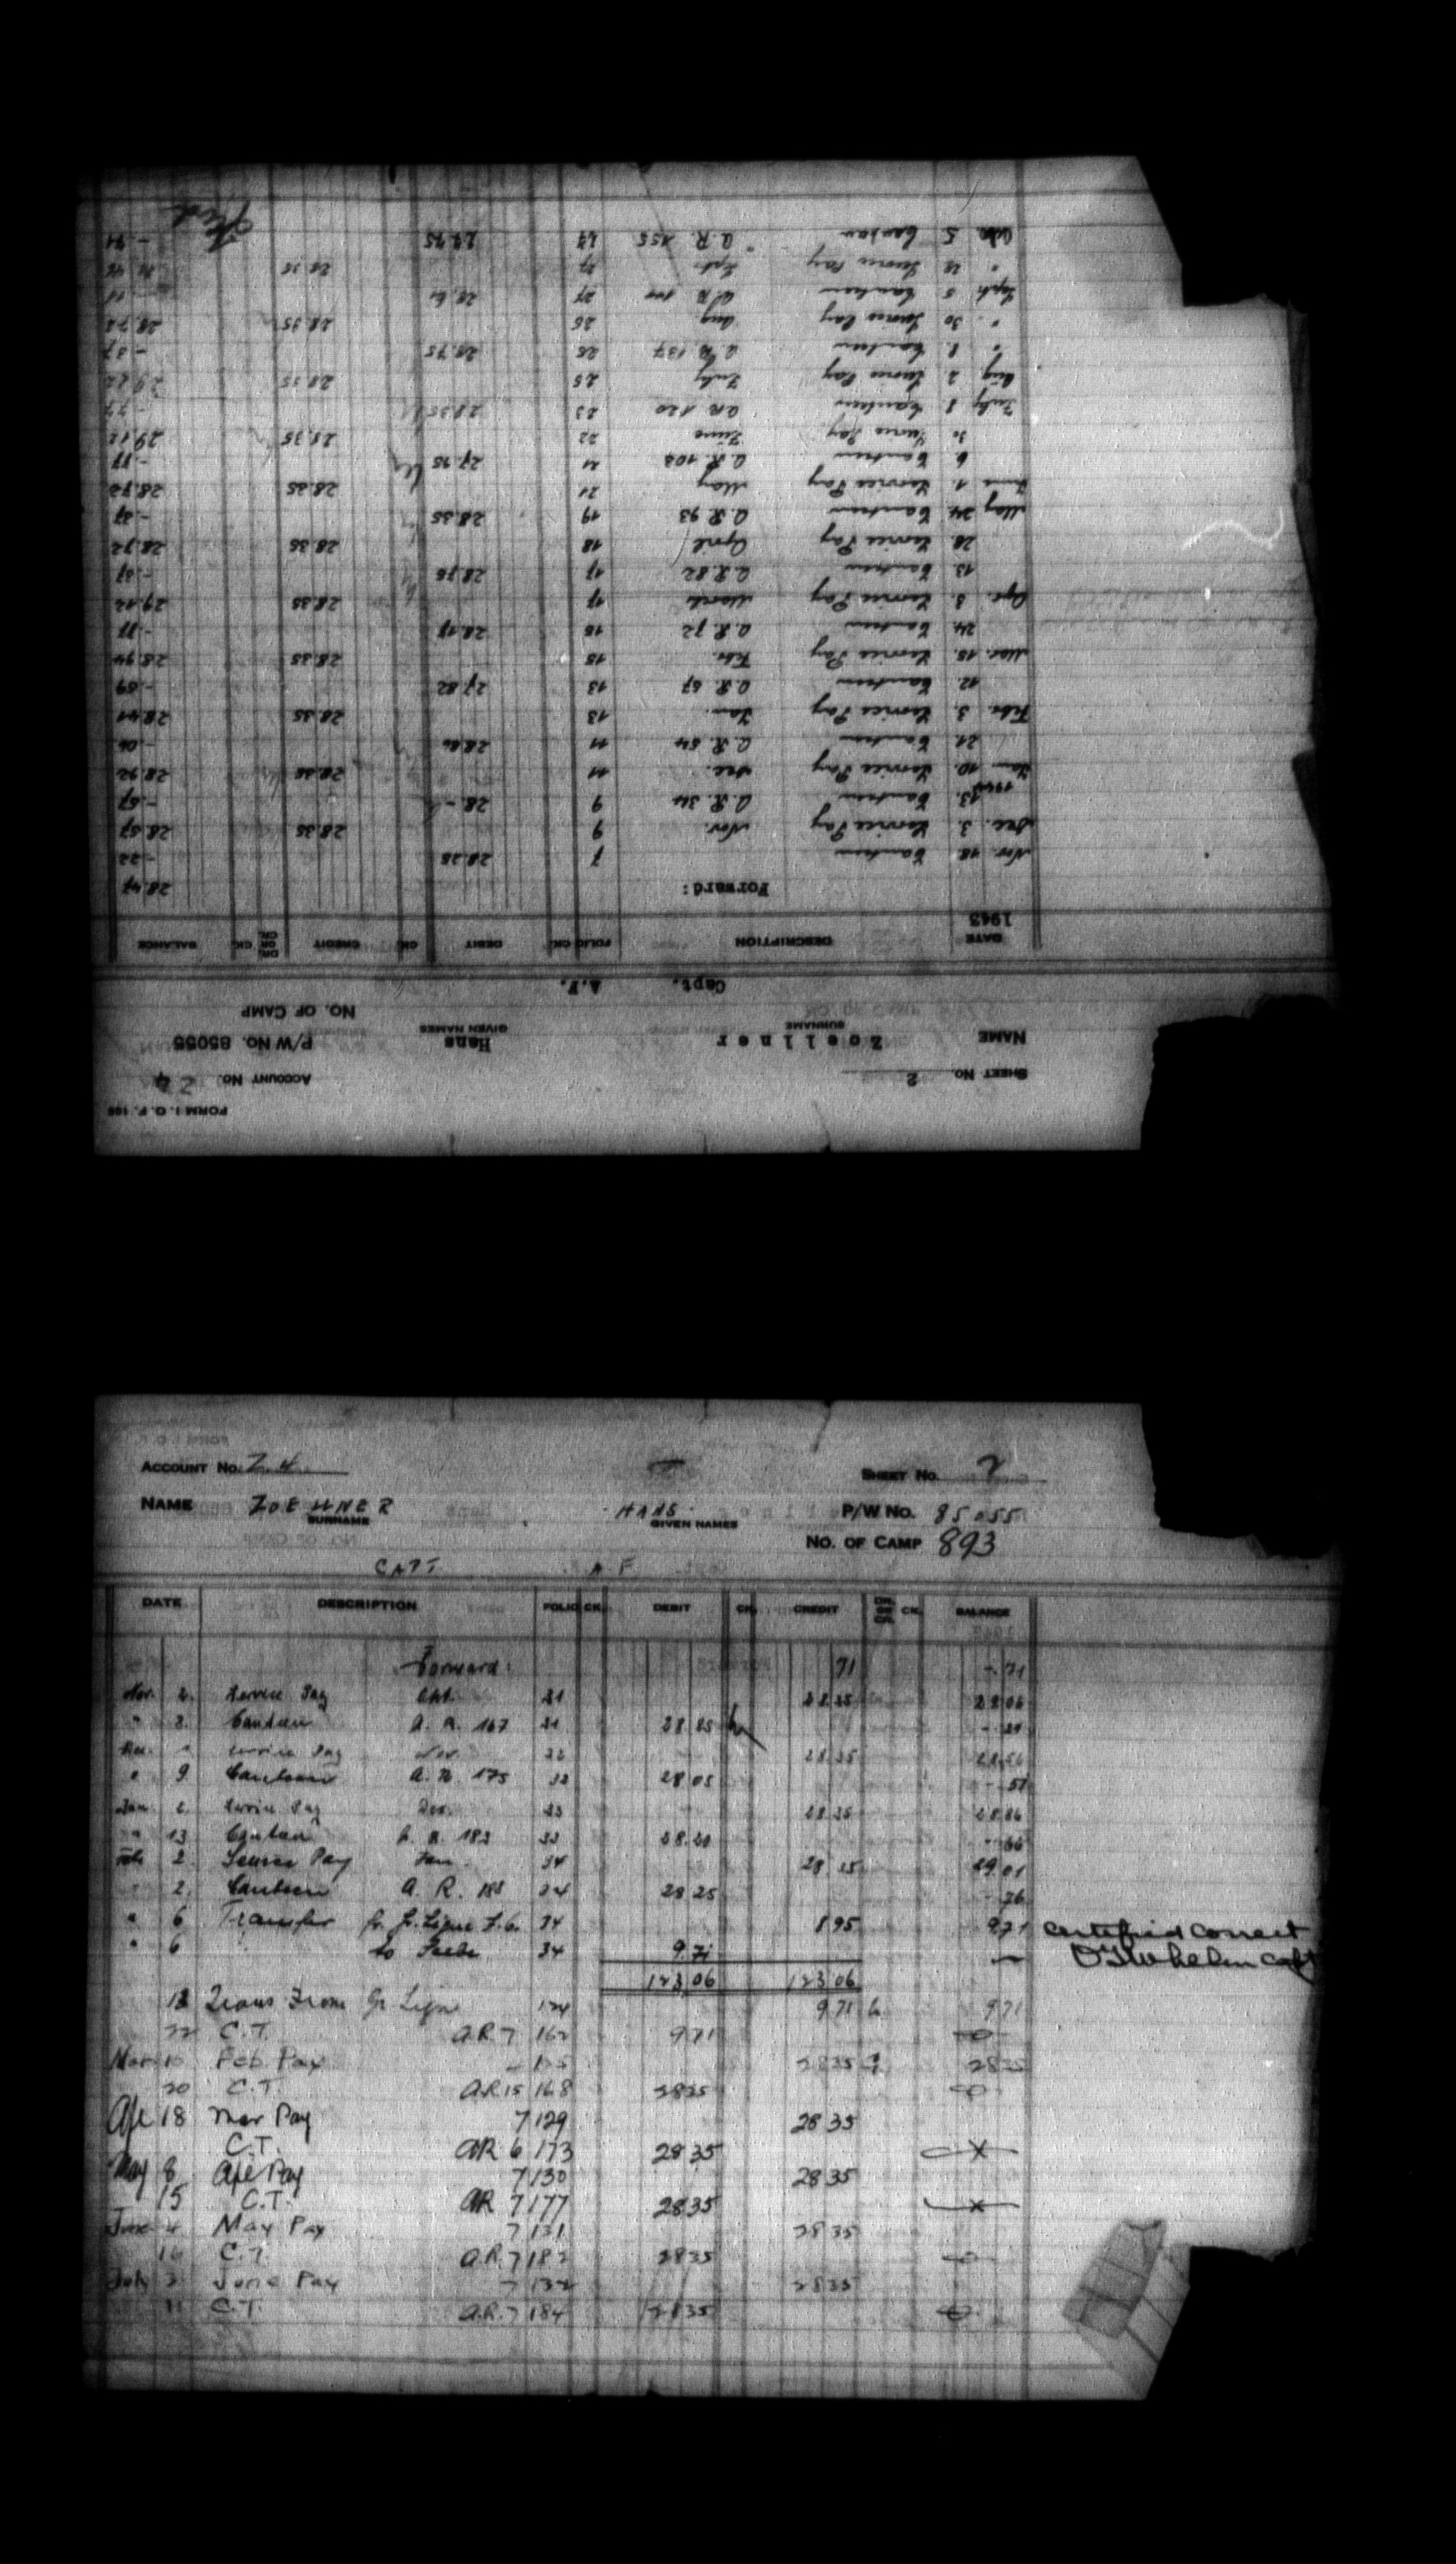 FORM I. O. F. 108
SHEET No. 2 ACCOUNT No. Z 4
NAME Zoellner Hans P/W No. 85055
SURNAME GIVEN NAMES
NO. OF CAMP
Capt. A.F.
DATE DESCRIPTION FOLIO CK. DEBIT CK. CREDIT DR. OR CR. CK. BALANCE
1943
Forward: 28.47
Nov. 18. Canteen 7 28.25 -.22
Dec. 3. Service Pay Nov. 9 28.35 28.57
13. Canteen A.R. 34 9 28.- -.57
1944
Jan. 10. Service Pay Dec. 11 28.35 28.92
21. Canteen A.R. 54 11 28.86 -.06
Febr. 3. Service Pay Jan. 13 28.35 28.41
12. Canteen A.R. 67 13 27.82 -.59
Mar. 15. Service Pay Febr. 15 28.35 28.94
24. Canteen A.R. 72 28.17 -.77
Apr. 3. Service Pay March 17 28.35 29.12
13. Canteen A.R. 82 17 28.75 -.37
28. Service Pay April 18 28.35 28.72
May 24. Canteen A.R. 93 19 28.35 -.37
June 1. Service Pay May 21 28.35 28.72
6. Canteen A.R. 103 21 27.95 -.77
30 Service Pay June 22 28.35 29.12
July 8 Canteen A.R. 120 23 28.35 -.77
Aug. 2 Service Pay July 25 28.35 29.12
" 8. Canteen A.R. 137 28.75 -.37
" 30 Service Pay Aug. 26 28.35 28.72
Sept. 5 Canteen A.R. 27
" Service Pay Sept. 28.35
5 Canteen A.R. 155
ACCOUNT No. Z.4 SHEET No. 2
NAME ZOELLNER HANS P/W No. 85055
SURNAME GIVEN NAMES
NO. OF CAMP 893
CAPT. A F.
DATE DESCRIPTION FOLIO CK. DEBIT CK. CREDIT DR. OR CR. CK. BALANCE
Forward: 71 -.71
Nov. 2. Service Pay Okt. 31 28 35 29 06
" 8. Canteen A. R. 167 31 28 85 -.21
Dec. Service Pay Nov. 32 28 35 28 56
" 9 Canteen A. R. 175 32 28 05 -.51
Jan. 2. Service Pay Dec. 33 28 35 28 86
" 13 Canteen A. R. 183 33 28.20 -.66
Feb 2. Service Pay Jan. 34 28 35 29 01
2. Canteen A. R. 188 34 28 25 -.76
" 6 Transfer fr. Gr. Ligne 34 8 95 9 71 Certified Correct
" 6 to 34 9.71 — Capt
123 06 123 06
13 Trans From Gr Ligne 124 9 71 9 71
22 C.T. A.R 7 162 9 71 0
Mar 10 Feb. Pay 28 35 28 35
20 C.T. A.R 15 168 28 35 0
Apl 18 Mar Pay 7 129 28 35
C.T. AR 6 173 28 35 x
May 8 Apl Pay 7 130 28 35
15 C.T. AR 7 177 28 35 x
June 4 May Pay 7 131 28 35
16 C.T. A.R. 7 182 28 35 0
July 2 June Pay 7 132 28 35
11 C.T. A.R. 7 184 28 35 0